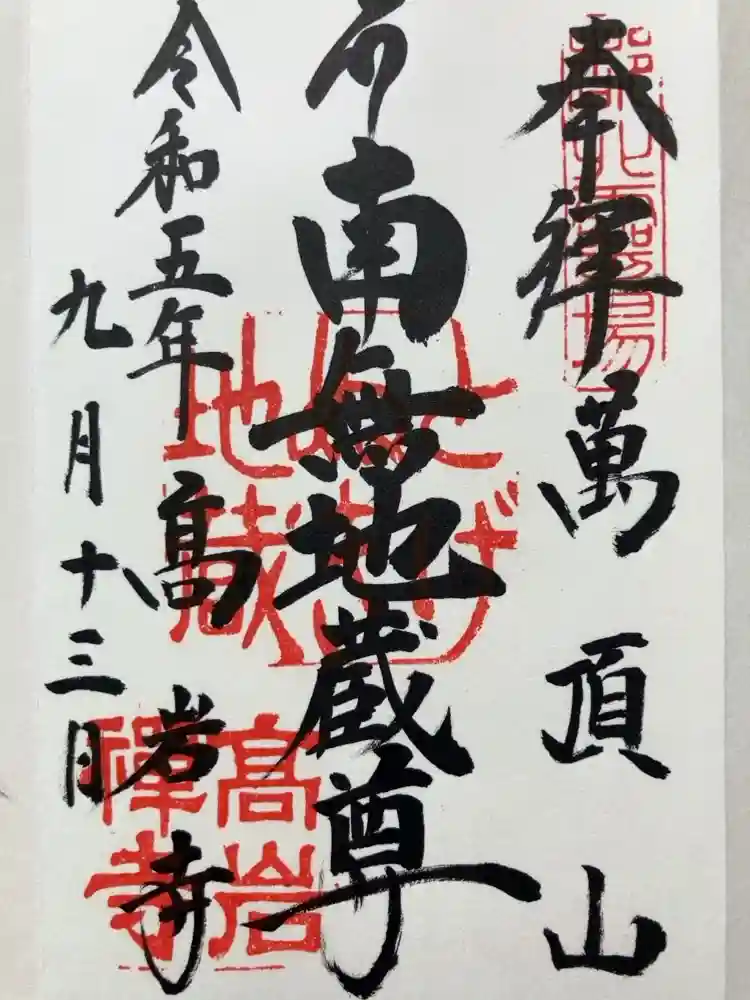 奉拝 萬頂山
南無地蔵尊
令和五年 髙岩寺
九月十三日
とげぬき地蔵
高岩禪寺